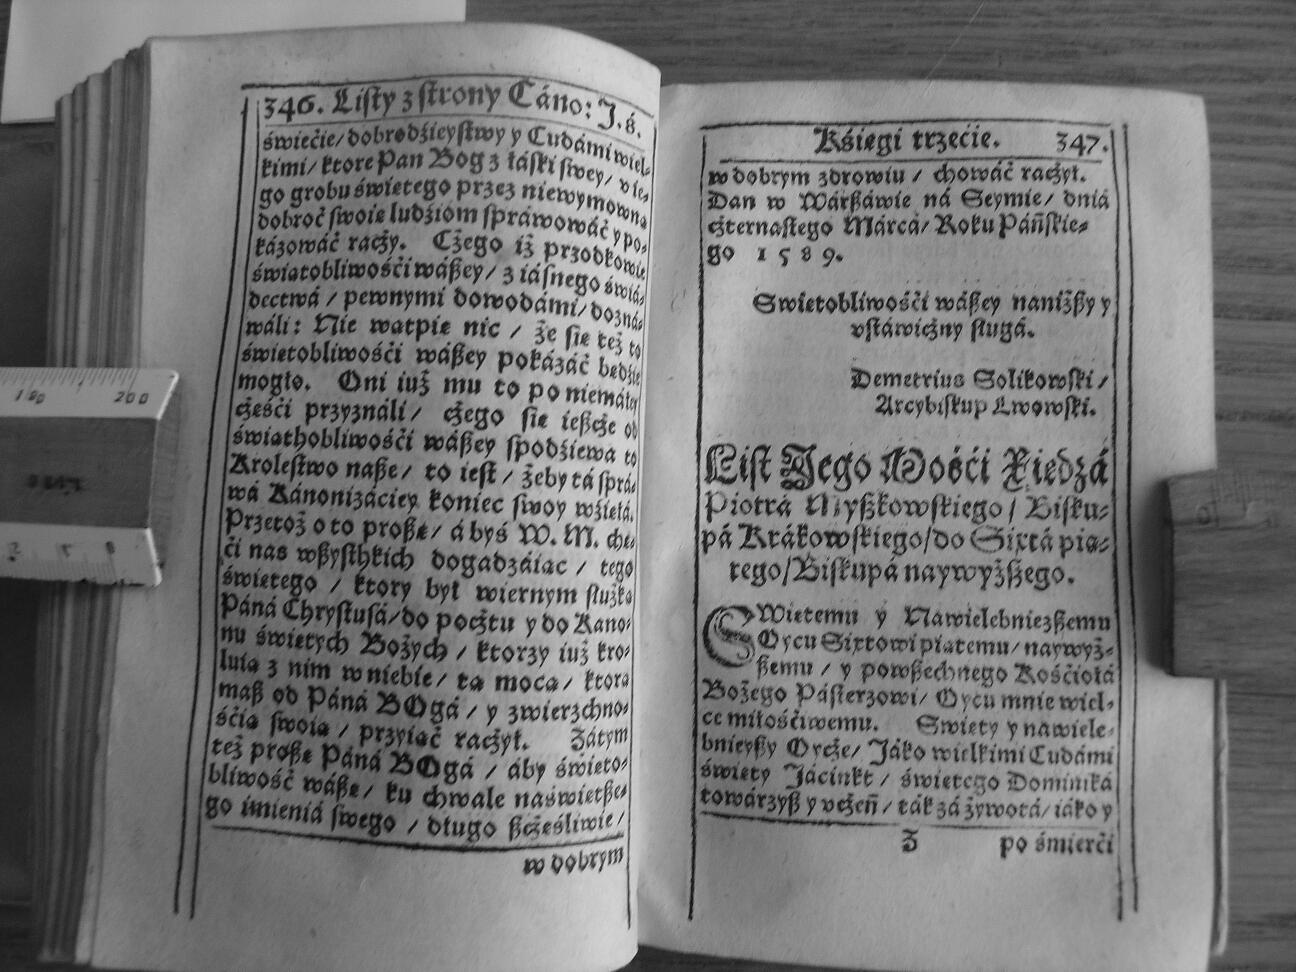 346. Listy z strony Cáno: J. ś.
świećie/ dobrodźieystwy y Cudámi wiel-
kimi/ ktore Pan Bog z łáski swey/ v ie-
go grobu świetego przez niewymowną
dobroć swoię ludźiom spráwowáć y po-
kázowáć raczy. Czego iż przodkowie
świątobliwośći wászey/ z iásnego świá-
dectwá/ pewnymi dowodámi/ dozná-
wáli: Nie wątpię nic/ że sie też to
świetobliwośći wászey pokázáć będźie
mogło. Oni iuż mu to po niemáłey
cześci przyználi/ czego sie iescze od
świathobliwośći wászey spodźiewa to
Krolestwo násze/ to iest/ żeby tá spra-
wá Kánonizáciey koniec swoy wźiełá.
Przetoż o to proszę/ á byś W. M. chę-
ći nas wszysthkich dogadzáiąc/ tego
świętego/ ktory był wiernym służką
Páná Chrystusá/ do pocztu y do Kano-
nu świętych Bożych/ ktorzy iuż kro-
luią z nim w niebie/ tą mocą/ ktorą
masz od Páná BOgá/ y zwierzchno-
śćią swoią/ przyiąć raczył. Zátym
też proszę Páná BOgá/ áby święto-
bliwość wászę/ ku chwale naświętsze-
go imieniá swego/ długo sczęśliwie/
w dobrym
Kśięgi trzećie. 347.
w dobrym zdrowiu/ chowáć raczył.
Dan w Wárszáwie ná Seymie/ dniá
czternastego Márcá/ Roku Páńskie-
go 1589.
Swiętobliwośći wászey naniższy y
vstáwiczny sługá.
Demetrius Solikowski/
Arcybiskup Lwowski.
List Jego Mośći Xiędzá
Piotrá Myszkowskiego/ Bisku-
pá Krákowskiego/ do Sixtá pią-
tego/ Biskupá naywyższego.
SWiętemu y Nawielebnieyszemu
Oycu Sixtowi piątemu/ naywyż-
szemu/ y powszechnego Kościołá
Bożego Pásterzowi/ Oycu mnie wiel-
ce miłośćiwemu. Swięty y nawiele-
bnieyszy Oycze/ Jáko wielkimi Cudámi
święty Jácinkt/ świętego Dominiká
towárzysz y vczeń/ ták zá żywotá/ iáko y
Z
po śmierći